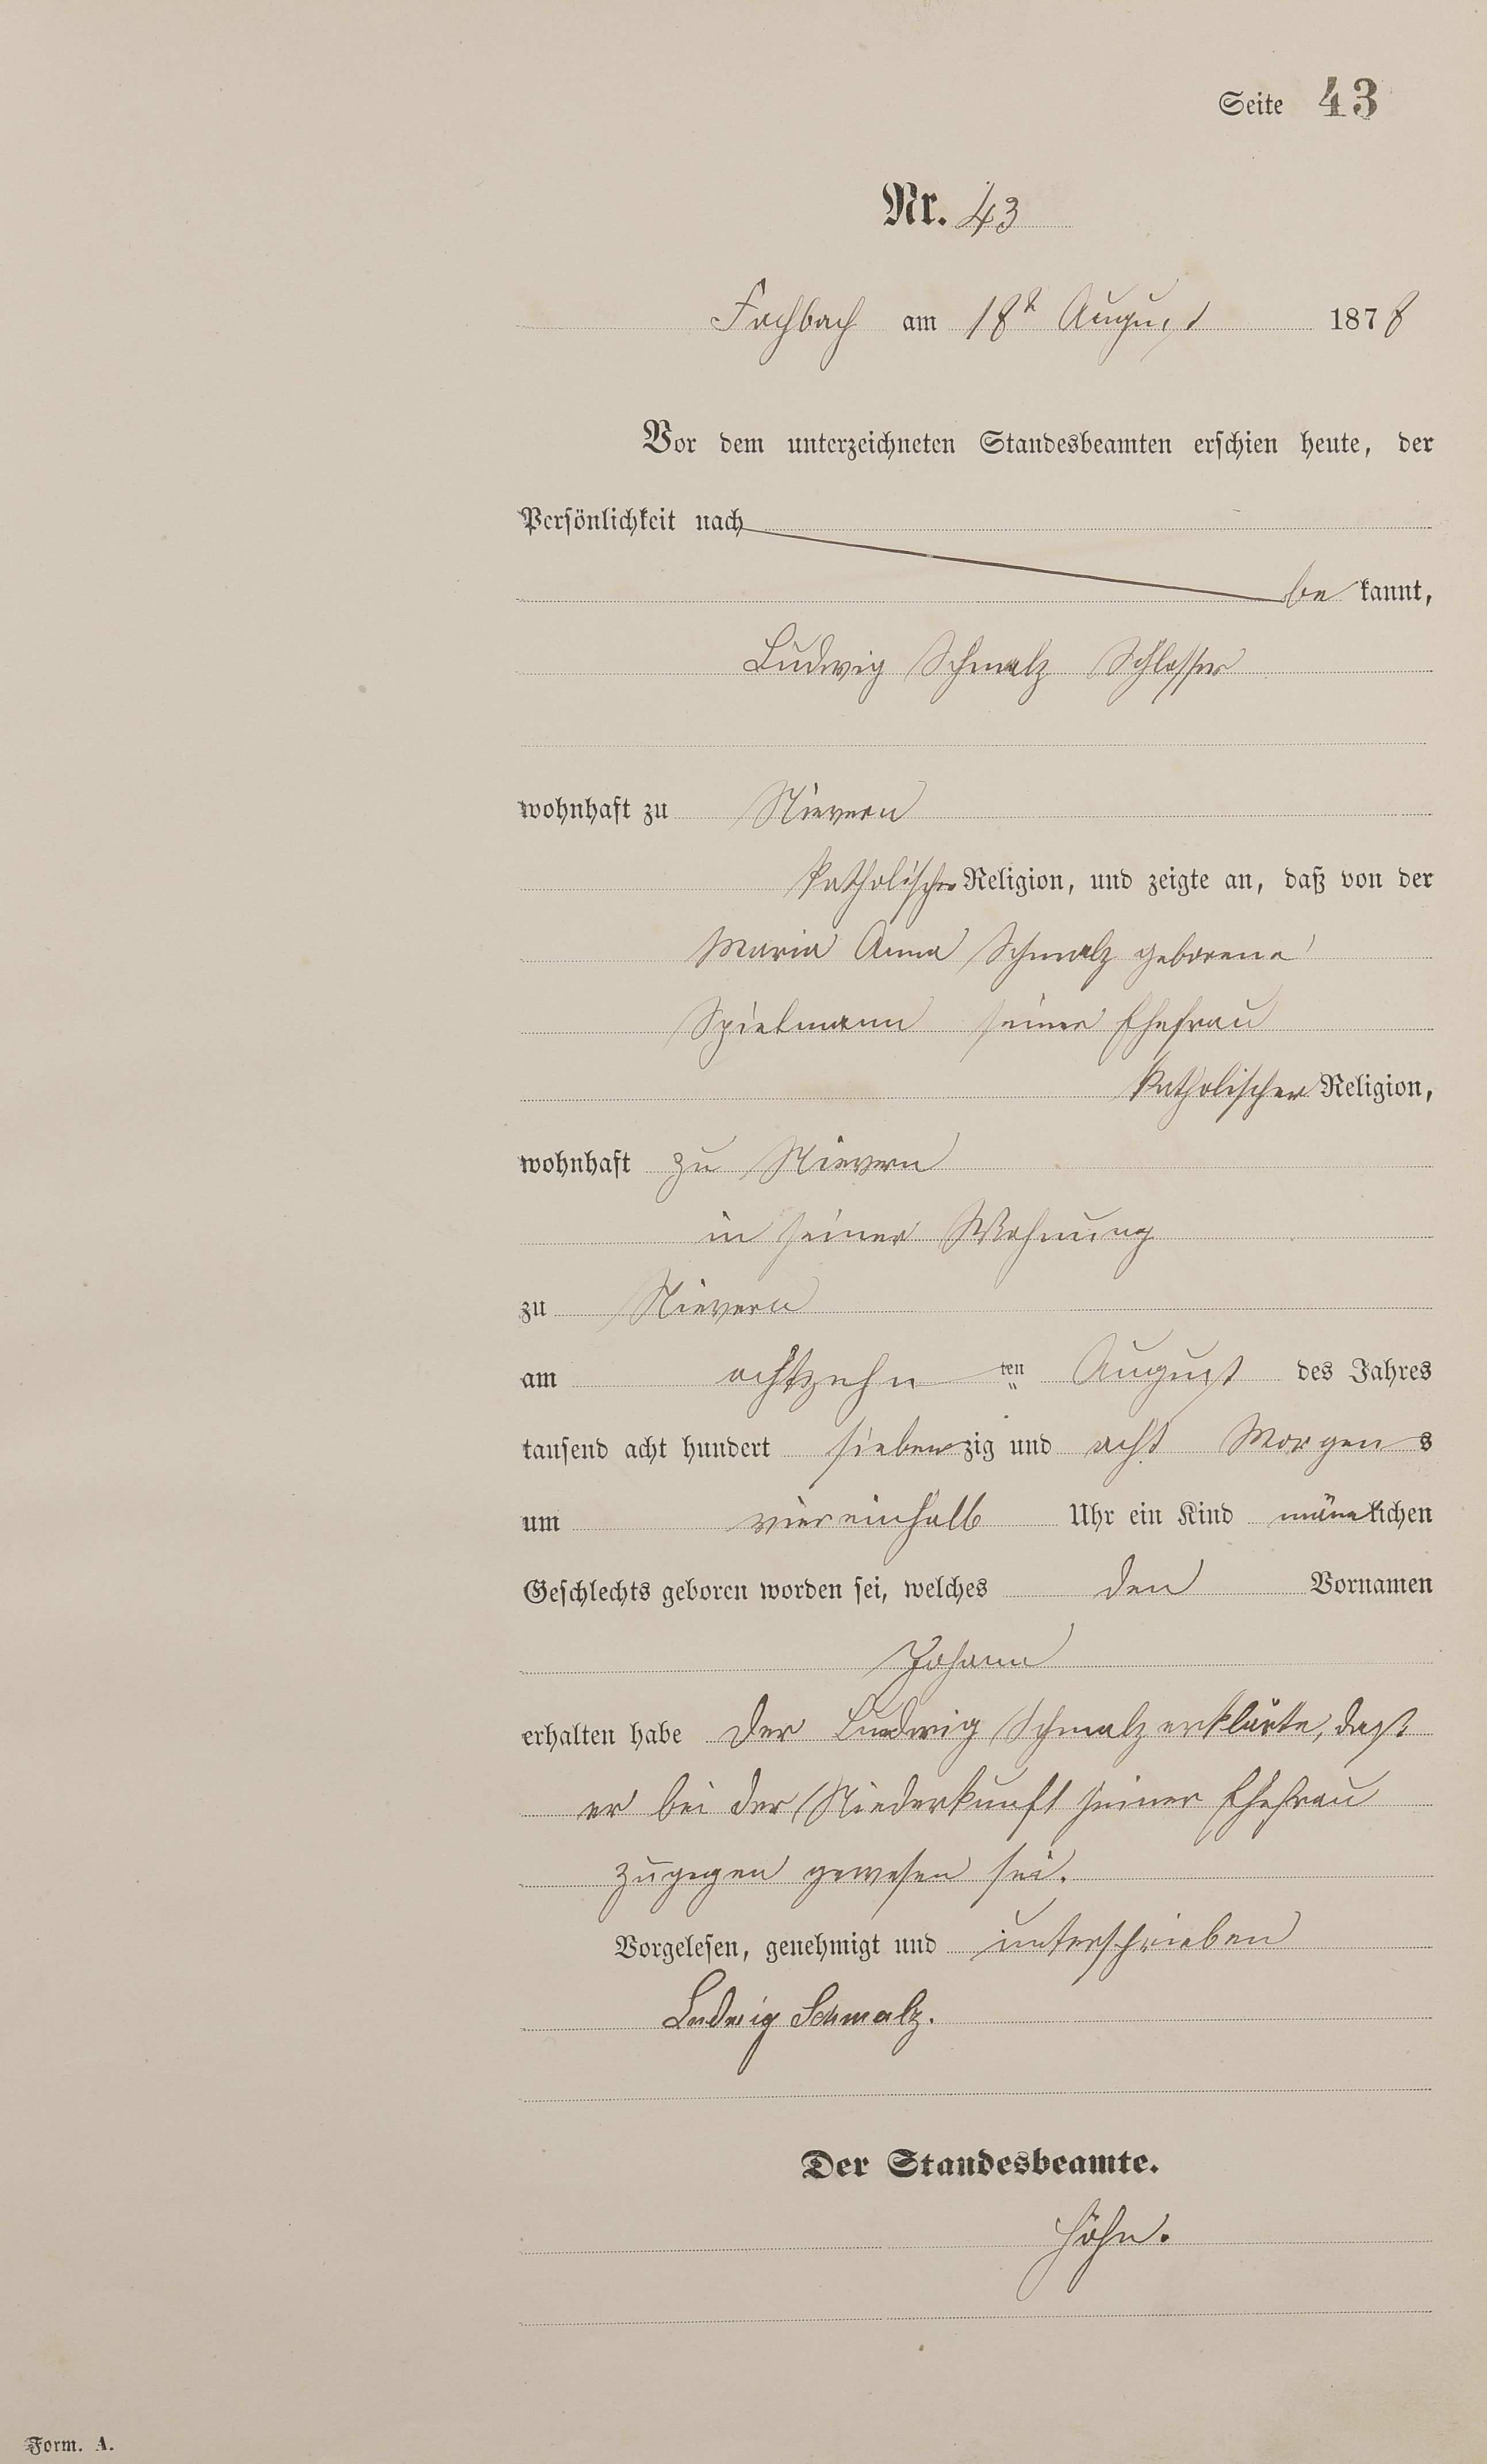 Seite 43
Nr. 43
Fachbach am 18t August 1878
Vor dem unterzeichneten Standesbeamten erschien heute, der
Persönlichkeit nach
be kannt,
Ludwig Schmalz Schlosser
wohnhaft zu Nievern
katholischer Religion, und zeigte an, daß von der
Maria Anna Schmalz geborene
Spielmann seiner Ehefrau
katholischer Religion,
wohnhaft zu Nievern
in seiner Wohnung
zu Nievern
am achtzehn ten August des Jahres
tausend acht hundert siebenzig und acht Morgens
um viereinhalb Uhr ein Kind mänlichen
Geschlechts geboren worden sei, welches den Vornamen
Johann
erhalten habe Der Ludwig Schmalz erklärte, daß
er bei der Niederkunft seiner Ehefrau
zugegen gewesen sei.
Vorgelesen, genehmigt und unterschrieben
Ludwig Schmalz.
Der Standesbeamte.
Höhn.
Form. A.